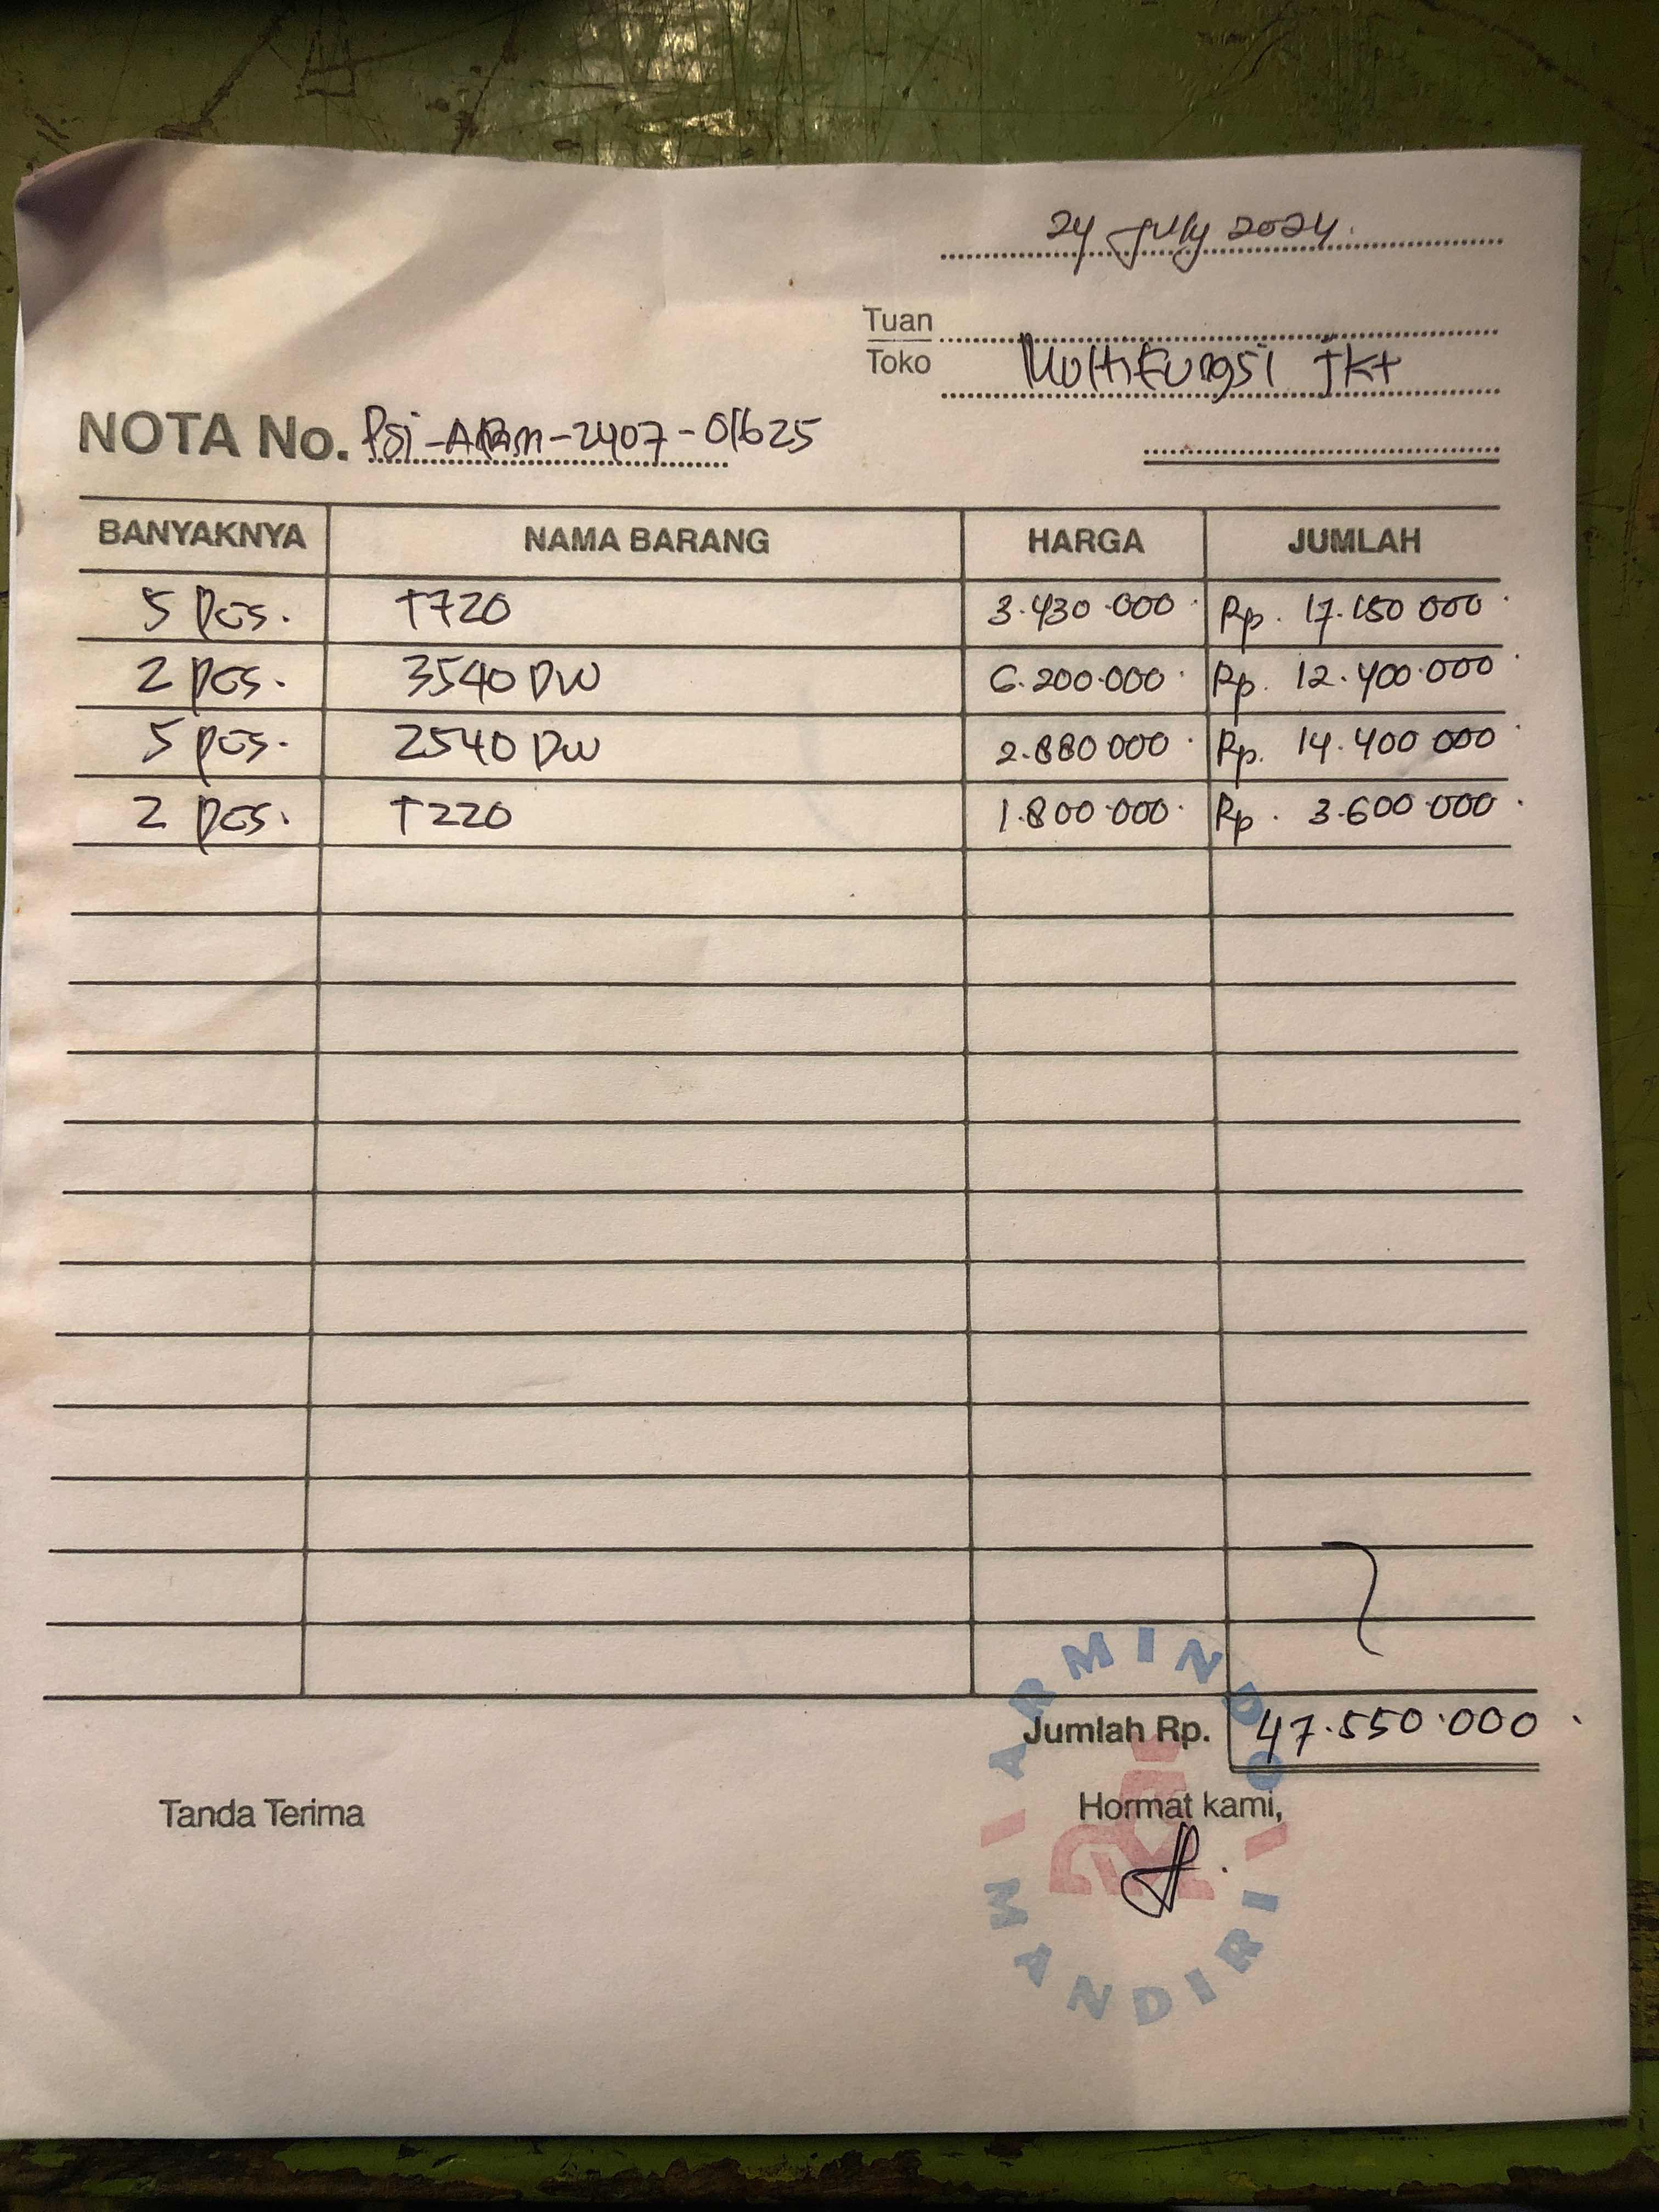 24 July 2024.
Tuan
Toko Multifungsi Jkt
NOTA No. PSI-ARM-2407-01625
BANYAKNYA NAMA BARANG HARGA JUMLAH
5 pcs. T720 3.430.000 Rp. 17.150.000
2 pcs. 3540 DW 6.200.000 Rp. 12.400.000
5 pcs. 2540 DW 2.880.000 Rp. 14.400.000
2 pcs. T220 1.800.000 Rp. 3.600.000
Jumlah Rp. 47.550.000
Tanda Terima Hormat kami,
ARMINDO
MANDIRI